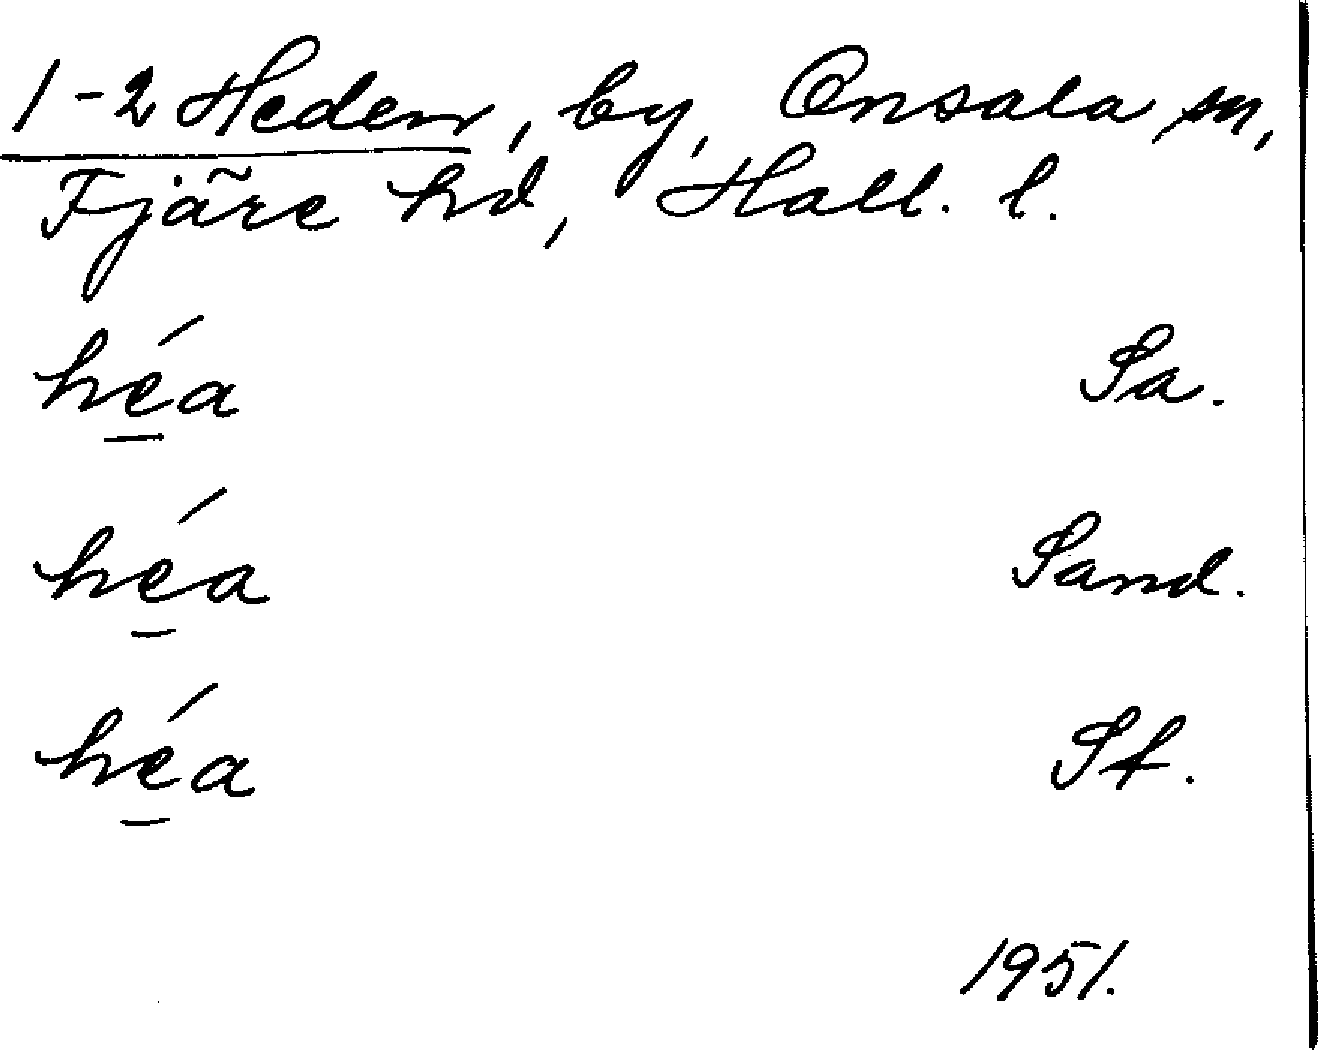 1-2 Heden, by, Onsala sn,
Fjäre hd, Hall. l.
héa Sa.
héa Sand.
héa St.
1951.